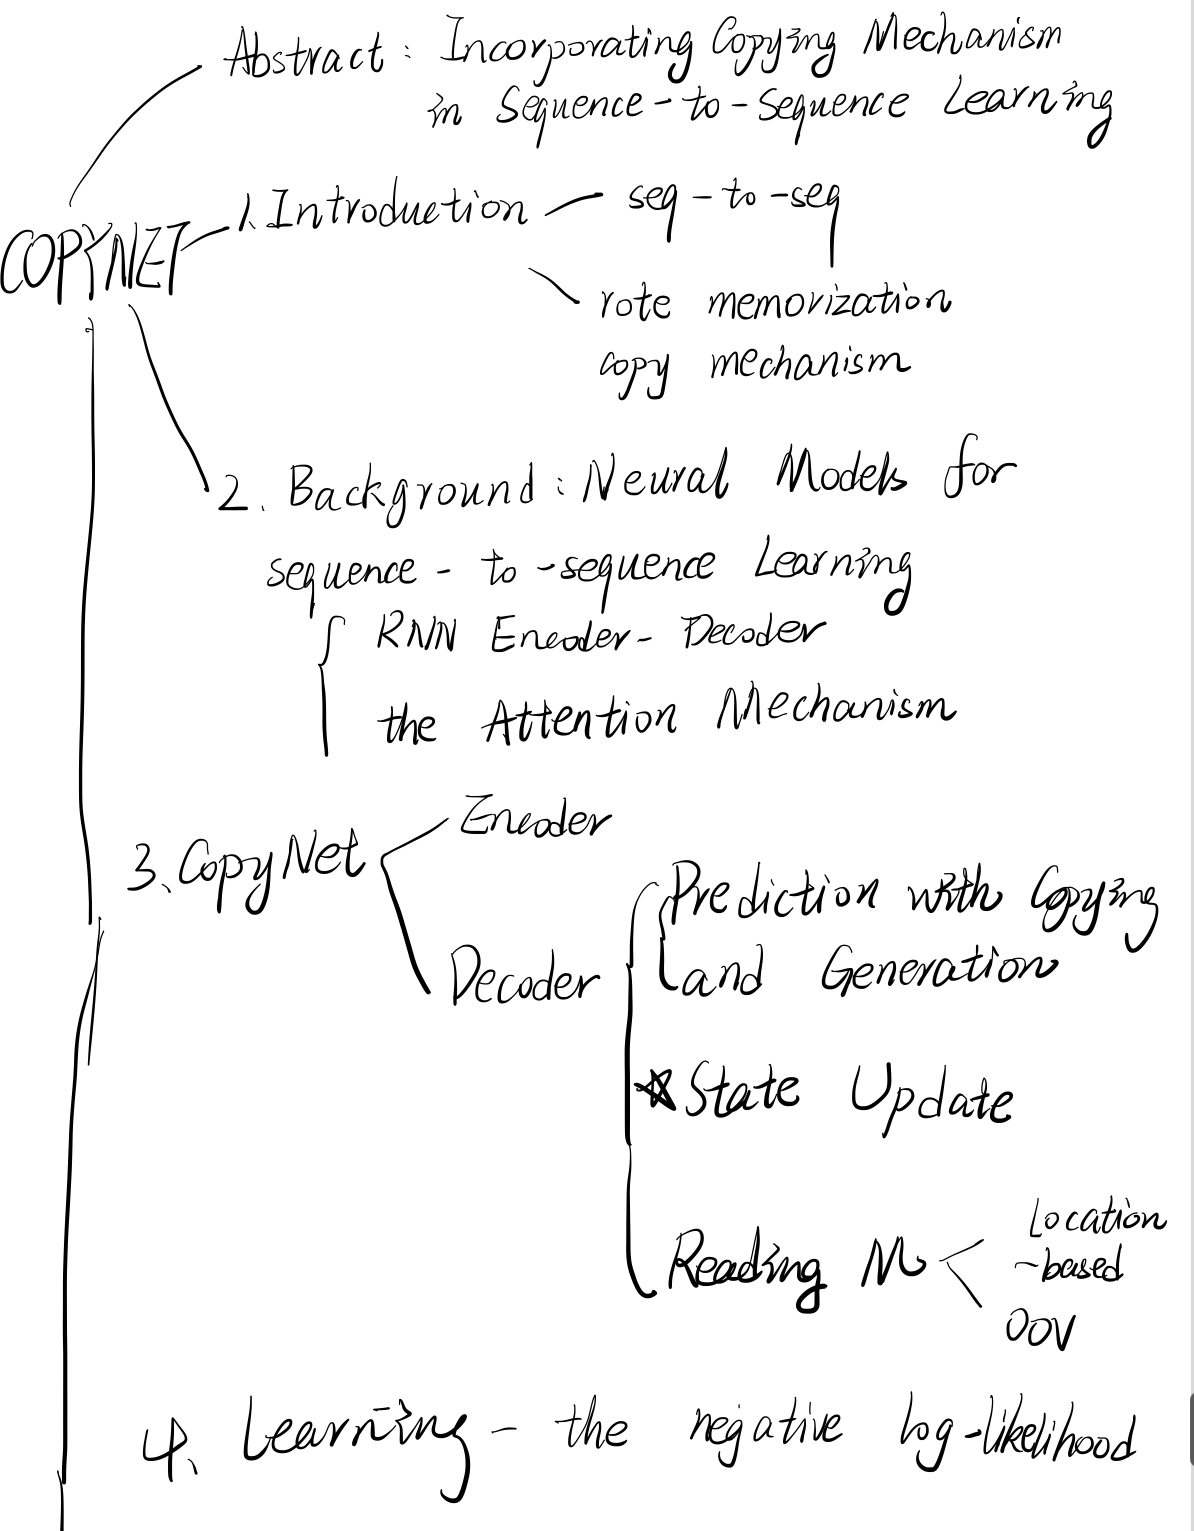 Abstract : Incorporating Copying Mechanism
in Sequence-to-Sequence Learning
COPYNET
1. Introduction — seq-to-seq
rote memorization
copy mechanism
2. Background : Neural Models for
sequence-to-sequence Learning
RNN Encoder-Decoder
the Attention Mechanism
3. CopyNet
Encoder
Decoder
Prediction with Copying
and Generation
☆ State Update
Reading M
Location
-based
OOV
4. Learning - the negative log-likelihood